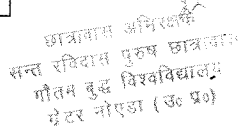 छात्रावास अभिरक्षक
सन्त रविदास पुरुष छात्रावास
गौतम बुद्ध विश्वविद्यालय
ग्रेटर नोएडा (उ० प्र०)